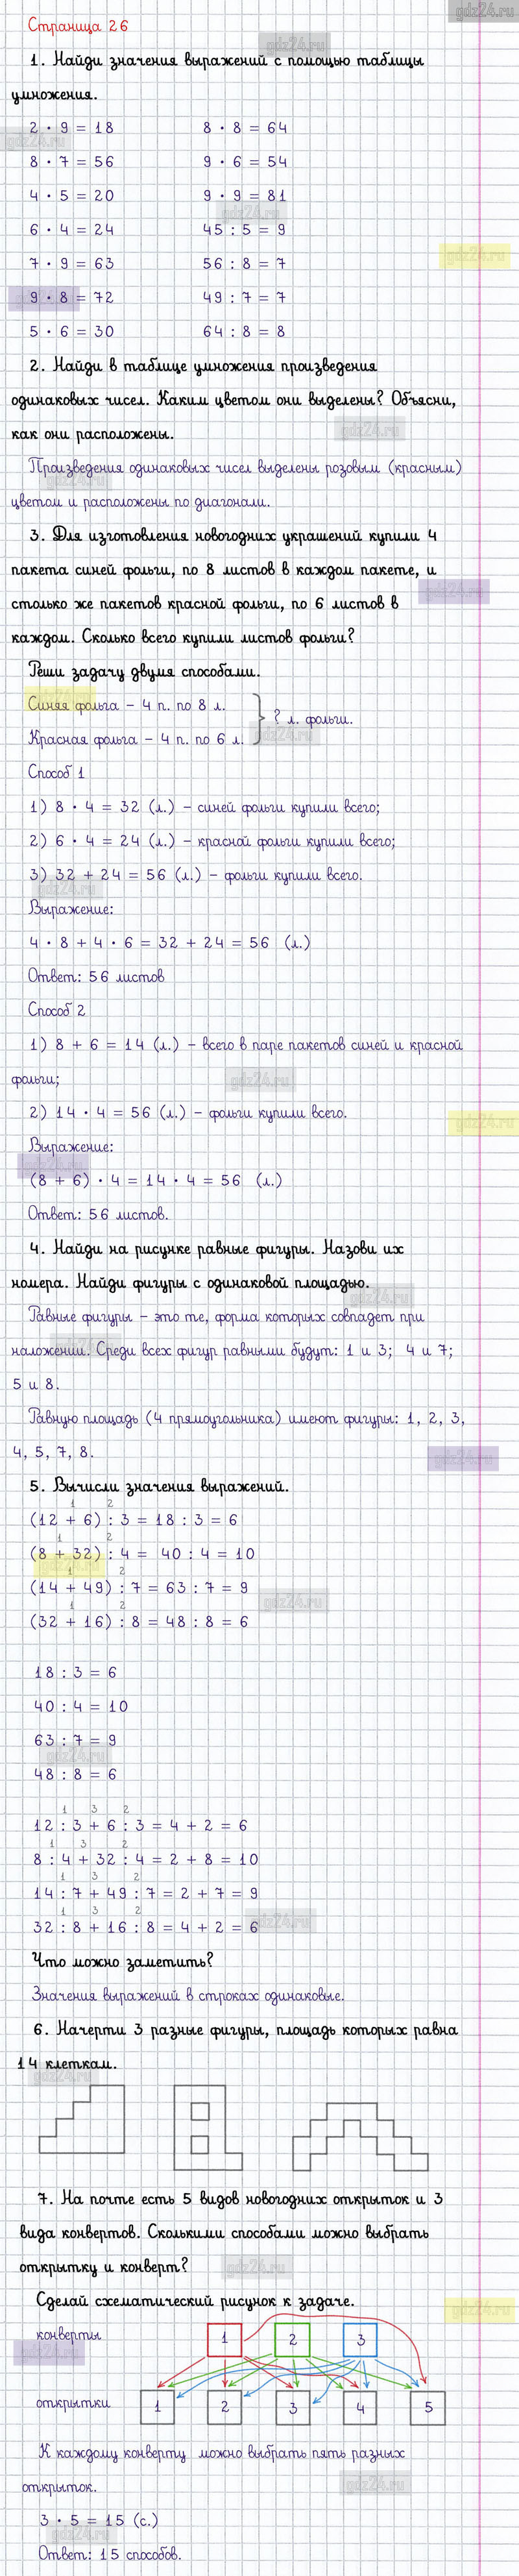 gdz24.ru
Страница 26
gdz24.ru
1. Найди значения выражений с помощью таблицы
умножения.
2 · 9 = 18 8 · 8 = 64
gdz24.ru
8 · 7 = 56 9 · 6 = 54
4 · 5 = 20 9 · 9 = 81
gdz24.ru
6 · 4 = 24 45 : 5 = 9
gdz24.ru
7 · 9 = 63 56 : 8 = 7
9 · 8 = 72 49 : 7 = 7
5 · 6 = 30 64 : 8 = 8
2. Найди в таблице умножения произведения
одинаковых чисел. Каким цветом они выделены? Объясни,
как они расположены.
gdz24.ru
Произведения одинаковых чисел выделены розовым (красным)
gdz24.ru
цветом и расположены по диагонали.
3. Для изготовления новогодних украшений купили 4
пакета синей фольги, по 8 листов в каждом пакете, и
gdz24.ru
столько же пакетов красной фольги, по 6 листов в
каждом. Сколько всего купили листов фольги?
Реши задачу двумя способами.
Синяя фольга – 4 п. по 8 л.
? л. фольги.
Красная фольга – 4 п. по 6 л.
gdz24.ru
Способ 1
1) 8 · 4 = 32 (л.) – синей фольги купили всего;
2) 6 · 4 = 24 (л.) – красной фольги купили всего;
3) 32 + 24 = 56 (л.) – фольги купили всего.
gdz24.ru
Выражение:
4 · 8 + 4 · 6 = 32 + 24 = 56 (л.)
Ответ: 56 листов
Способ 2
1) 8 + 6 = 14 (л.) – всего в паре пакетов синей и красной
фольги;
gdz24.ru
2) 14 · 4 = 56 (л.) – фольги купили всего.
gdz24.ru
Выражение:
gdz24.ru
(8 + 6) · 4 = 14 · 4 = 56 (л.)
Ответ: 56 листов.
4. Найди на рисунке равные фигуры. Назови их
номера. Найди фигуры с одинаковой площадью.
gdz24.ru
Равные фигуры – это те, форма которых совпадет при
gdz24.ru
наложении. Среди всех фигур равными будут: 1 и 3; 4 и 7;
5 и 8.
Равную площадь (4 прямоугольника) имеют фигуры: 1, 2, 3,
4, 5, 7, 8.
gdz24.ru
5. Вычисли значения выражений.
1 2
(12 + 6) : 3 = 18 : 3 = 6
1 2
(8 + 32) : 4 = 40 : 4 = 10
gdz24.ru
1 2
(14 + 49) : 7 = 63 : 7 = 9
gdz24.ru
1 2
(32 + 16) : 8 = 48 : 8 = 6
18 : 3 = 6
40 : 4 = 10
63 : 7 = 9
gdz24.ru
48 : 8 = 6
1 3 2
12 : 3 + 6 : 3 = 4 + 2 = 6
1 3 2
8 : 4 + 32 : 4 = 2 + 8 = 10
1 3 2
14 : 7 + 49 : 7 = 2 + 7 = 9
1 3 2
32 : 8 + 16 : 8 = 4 + 2 = 6
gdz24.ru
Что можно заметить?
Значения выражений в строках одинаковые.
6. Начерти 3 разные фигуры, площадь которых равна
14 клеткам.
gdz24.ru
7. На почте есть 5 видов новогодних открыток и 3
вида конвертов. Сколькими способами можно выбрать
открытку и конверт?
gdz24.ru
Сделай схематический рисунок к задаче.
gdz24.ru
конверты 1 2 3
gdz24.ru
открытки 1 2 3 4 5
К каждому конверту можно выбрать пять разных
открыток.
gdz24.ru
3 · 5 = 15 (с.)
gdz24.ru
Ответ: 15 способов.